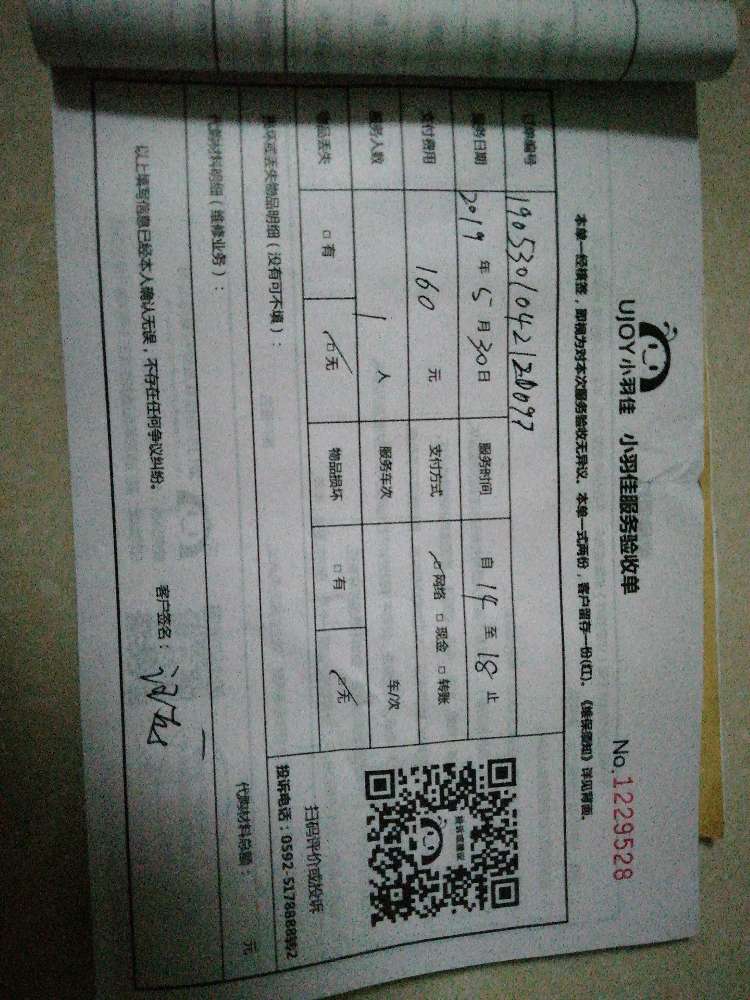 UJOY小羽佳 小羽佳服务验收单
No.1229528
本单一经核签，即视为对本次服务验收无异议，本单一式两份，客户留存一份(红)。《维保须知》详见背面。
订单编号 190530104212D097
服务日期 2019 年 5 月 30 日 服务时间 自 14 至 18 止
支付费用 160 元 支付方式 ☑网络 □现金 □转账
服务人数 1 人 服务车次 车/次
物品丢失 □有 ☑无 物品损坏 □有 ☑无
扫码评价或投诉
投诉电话：0592-5178888转2
损坏或丢失物品明细（没有可不填）：
代购材料明细（维修业务）：
代购材料总额： 元
以上填写信息已经本人确认无误，不存在任何争议纠纷。 客户签名：